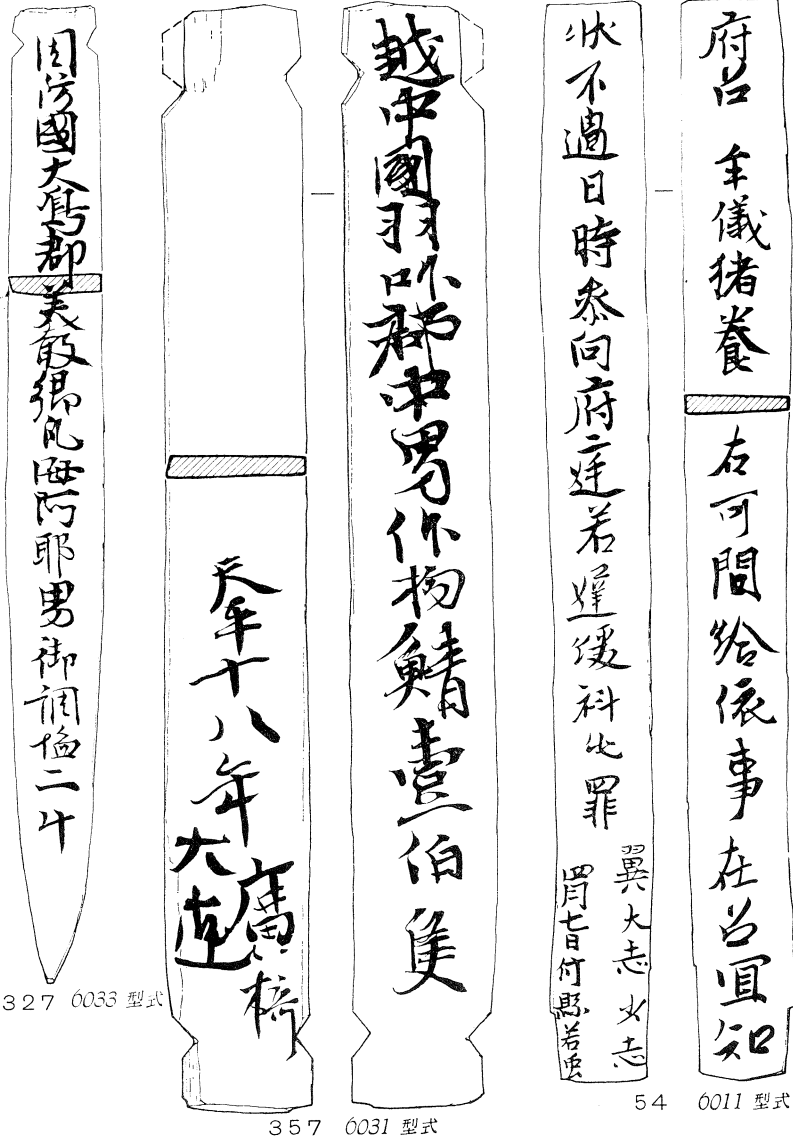 府召 牟儀猪養 右可問給依事在召宜知
状不過日時参向府庭若遅緩科必罪
翼大志 少志
四月七日付縣若虫
54 6011 型式
越中國羽咋郡中男作物鯖壹伯隻
天平十八年
廣椅
大
357 6031 型式
周防國大嶋郡美敢郷凡海阿耶男御調塩二斗
327 6033 型式